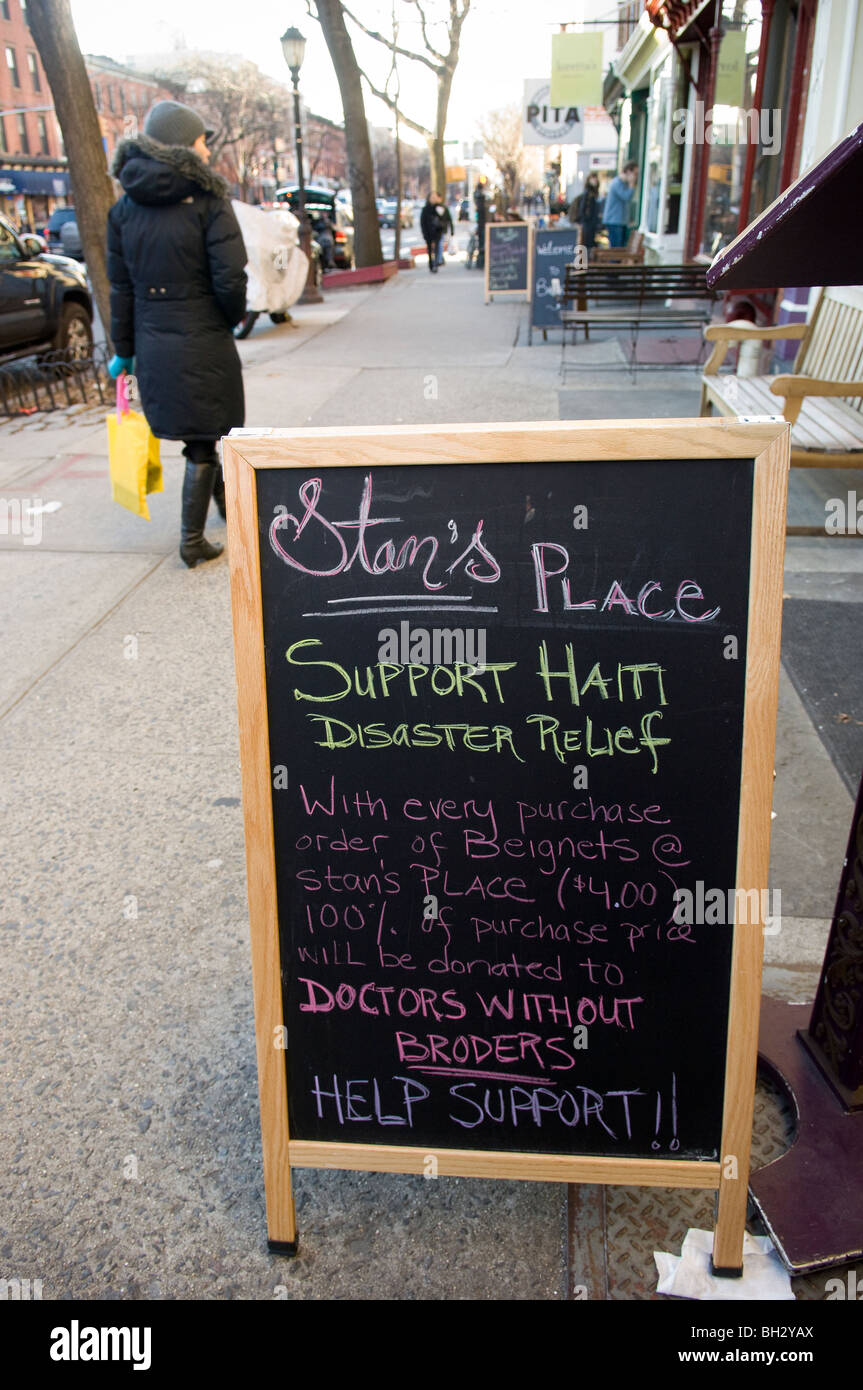 PITA
Welcome
Stan's Place
Support Haiti
Disaster Relief
With every purchase
order of Beignets @
Stan's PLACE ($4.00)
100% of purchase price
WILL be donated to
DOCTORS WITHOUT
BRODERS
HELP SUPPORT!!
alamy
Image ID: BH2YAX
www.alamy.com